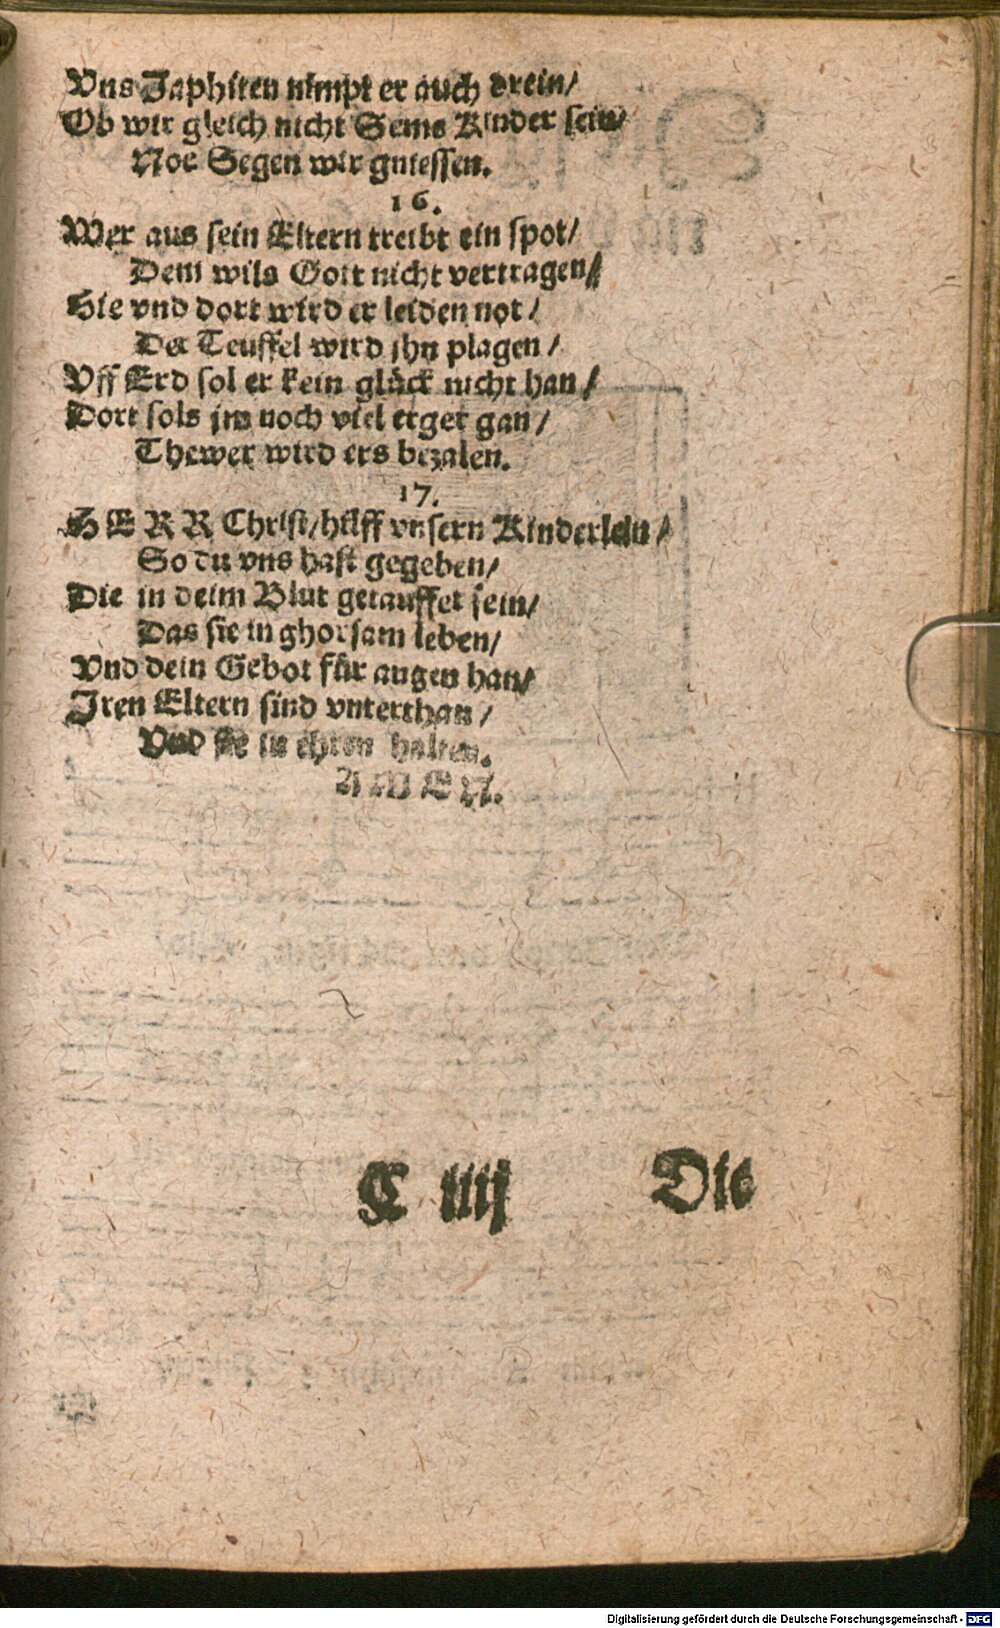 Vns Japhiten nimpt er auch drein/
Ob wir gleich nicht Sems Kinder sein/
Noe Segen wir gniessen.
16.
Wer aus sein Eltern treibt ein spot/
Dem wils Gott nicht vertragen/
Hie vnd dort wird er leiden not/
Der Teuffel wird jhn plagen/
Vff Erd sol er kein glück nicht han/
Dort sols jm noch viel erger gan/
Thewer wird ers bezalen.
17.
HERR Christ/hilff vnsern Kinderlein/
So du vns hast gegeben/
Die in deim Blut getauffet sein/
Das sie in ghorsam leben/
Vnd dein Gebot für augen han/
Jren Eltern sind vnterthan/
Vnd sie in ehren halten.
AMEN.
C iiij Die
Digitalisierung gefördert durch die Deutsche Forschungsgemeinschaft - DFG